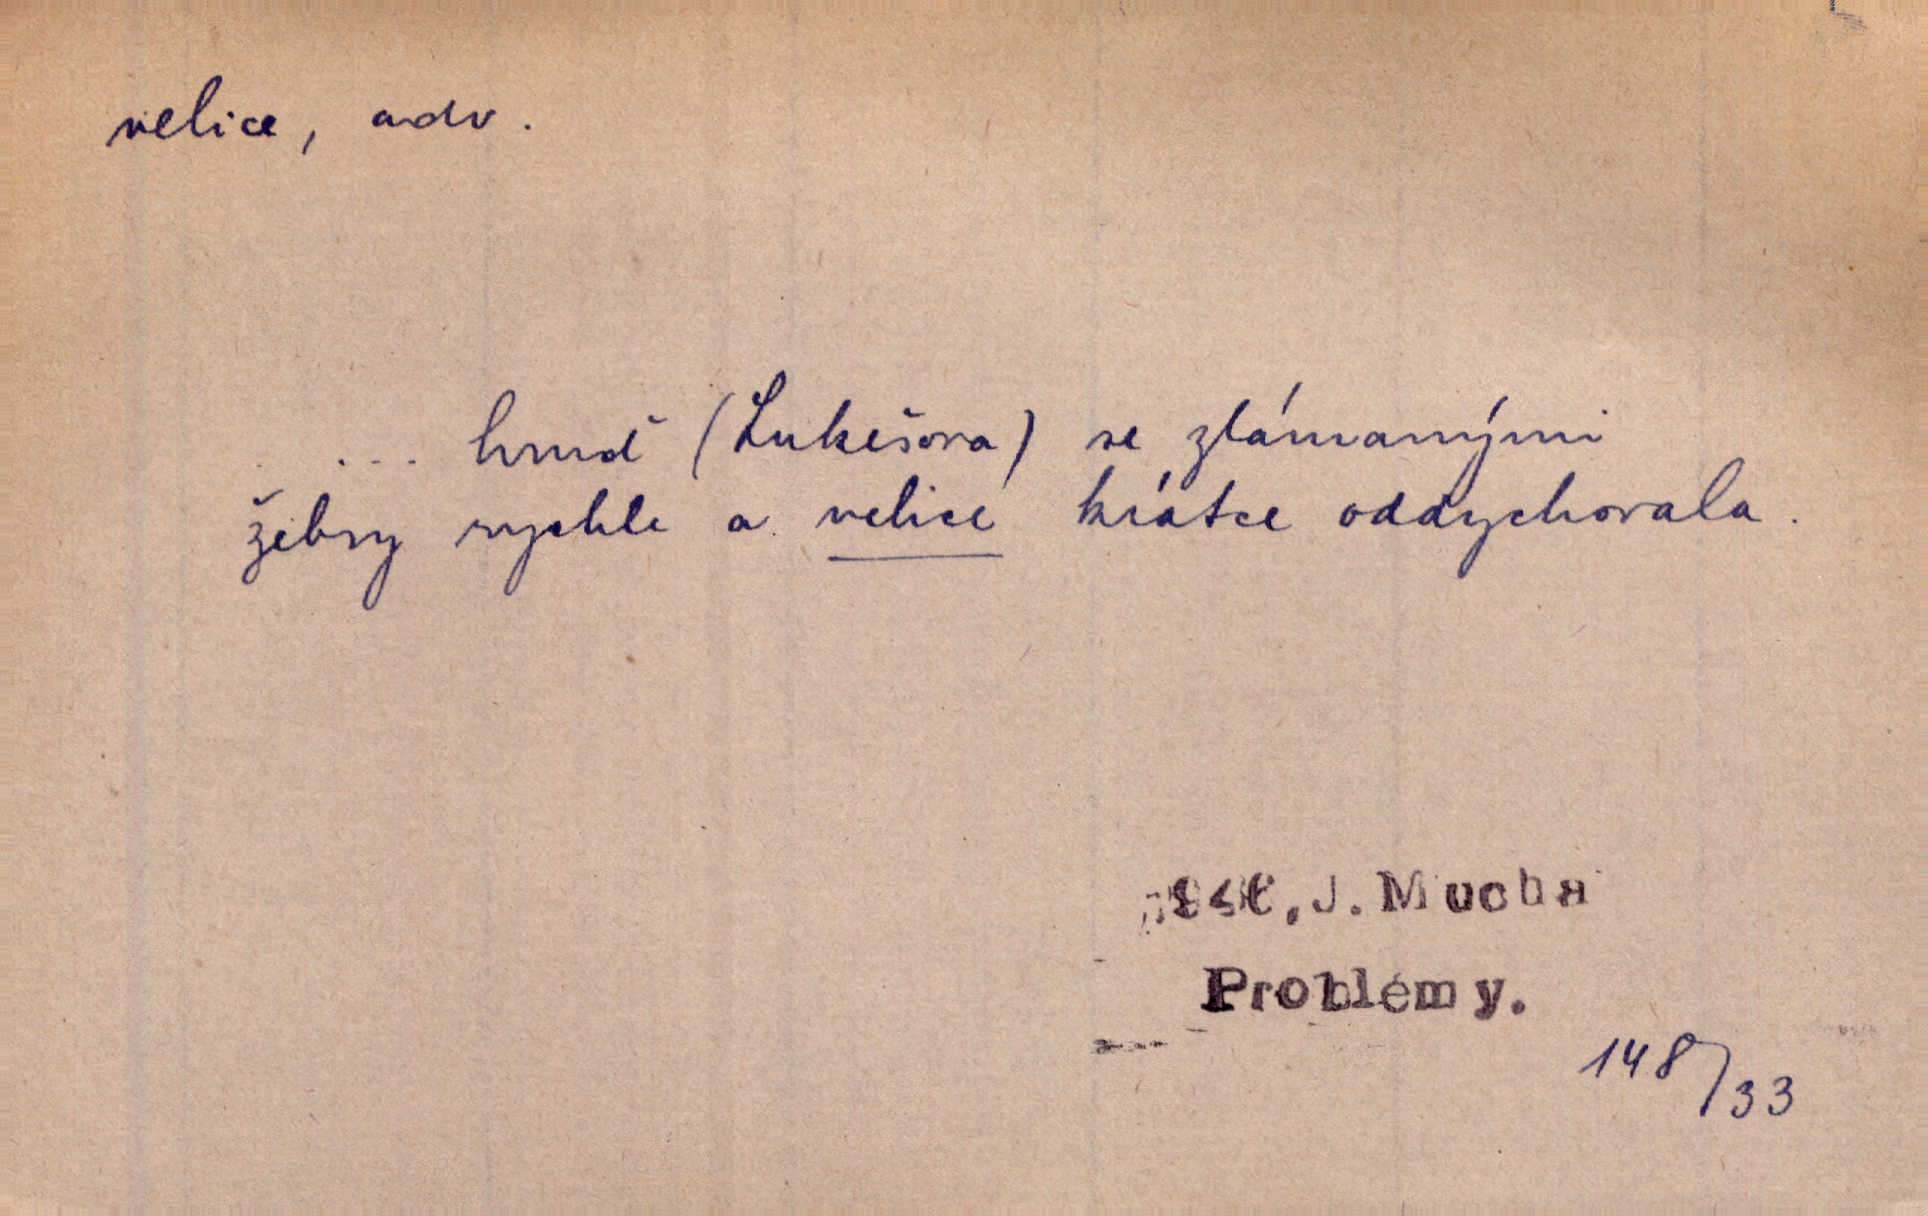 velice, adv.
... hruď (Lukešova) se zlámanými
žebry rychle a velice krátce oddychovala.
J. Mucha
Problémy.
148/33